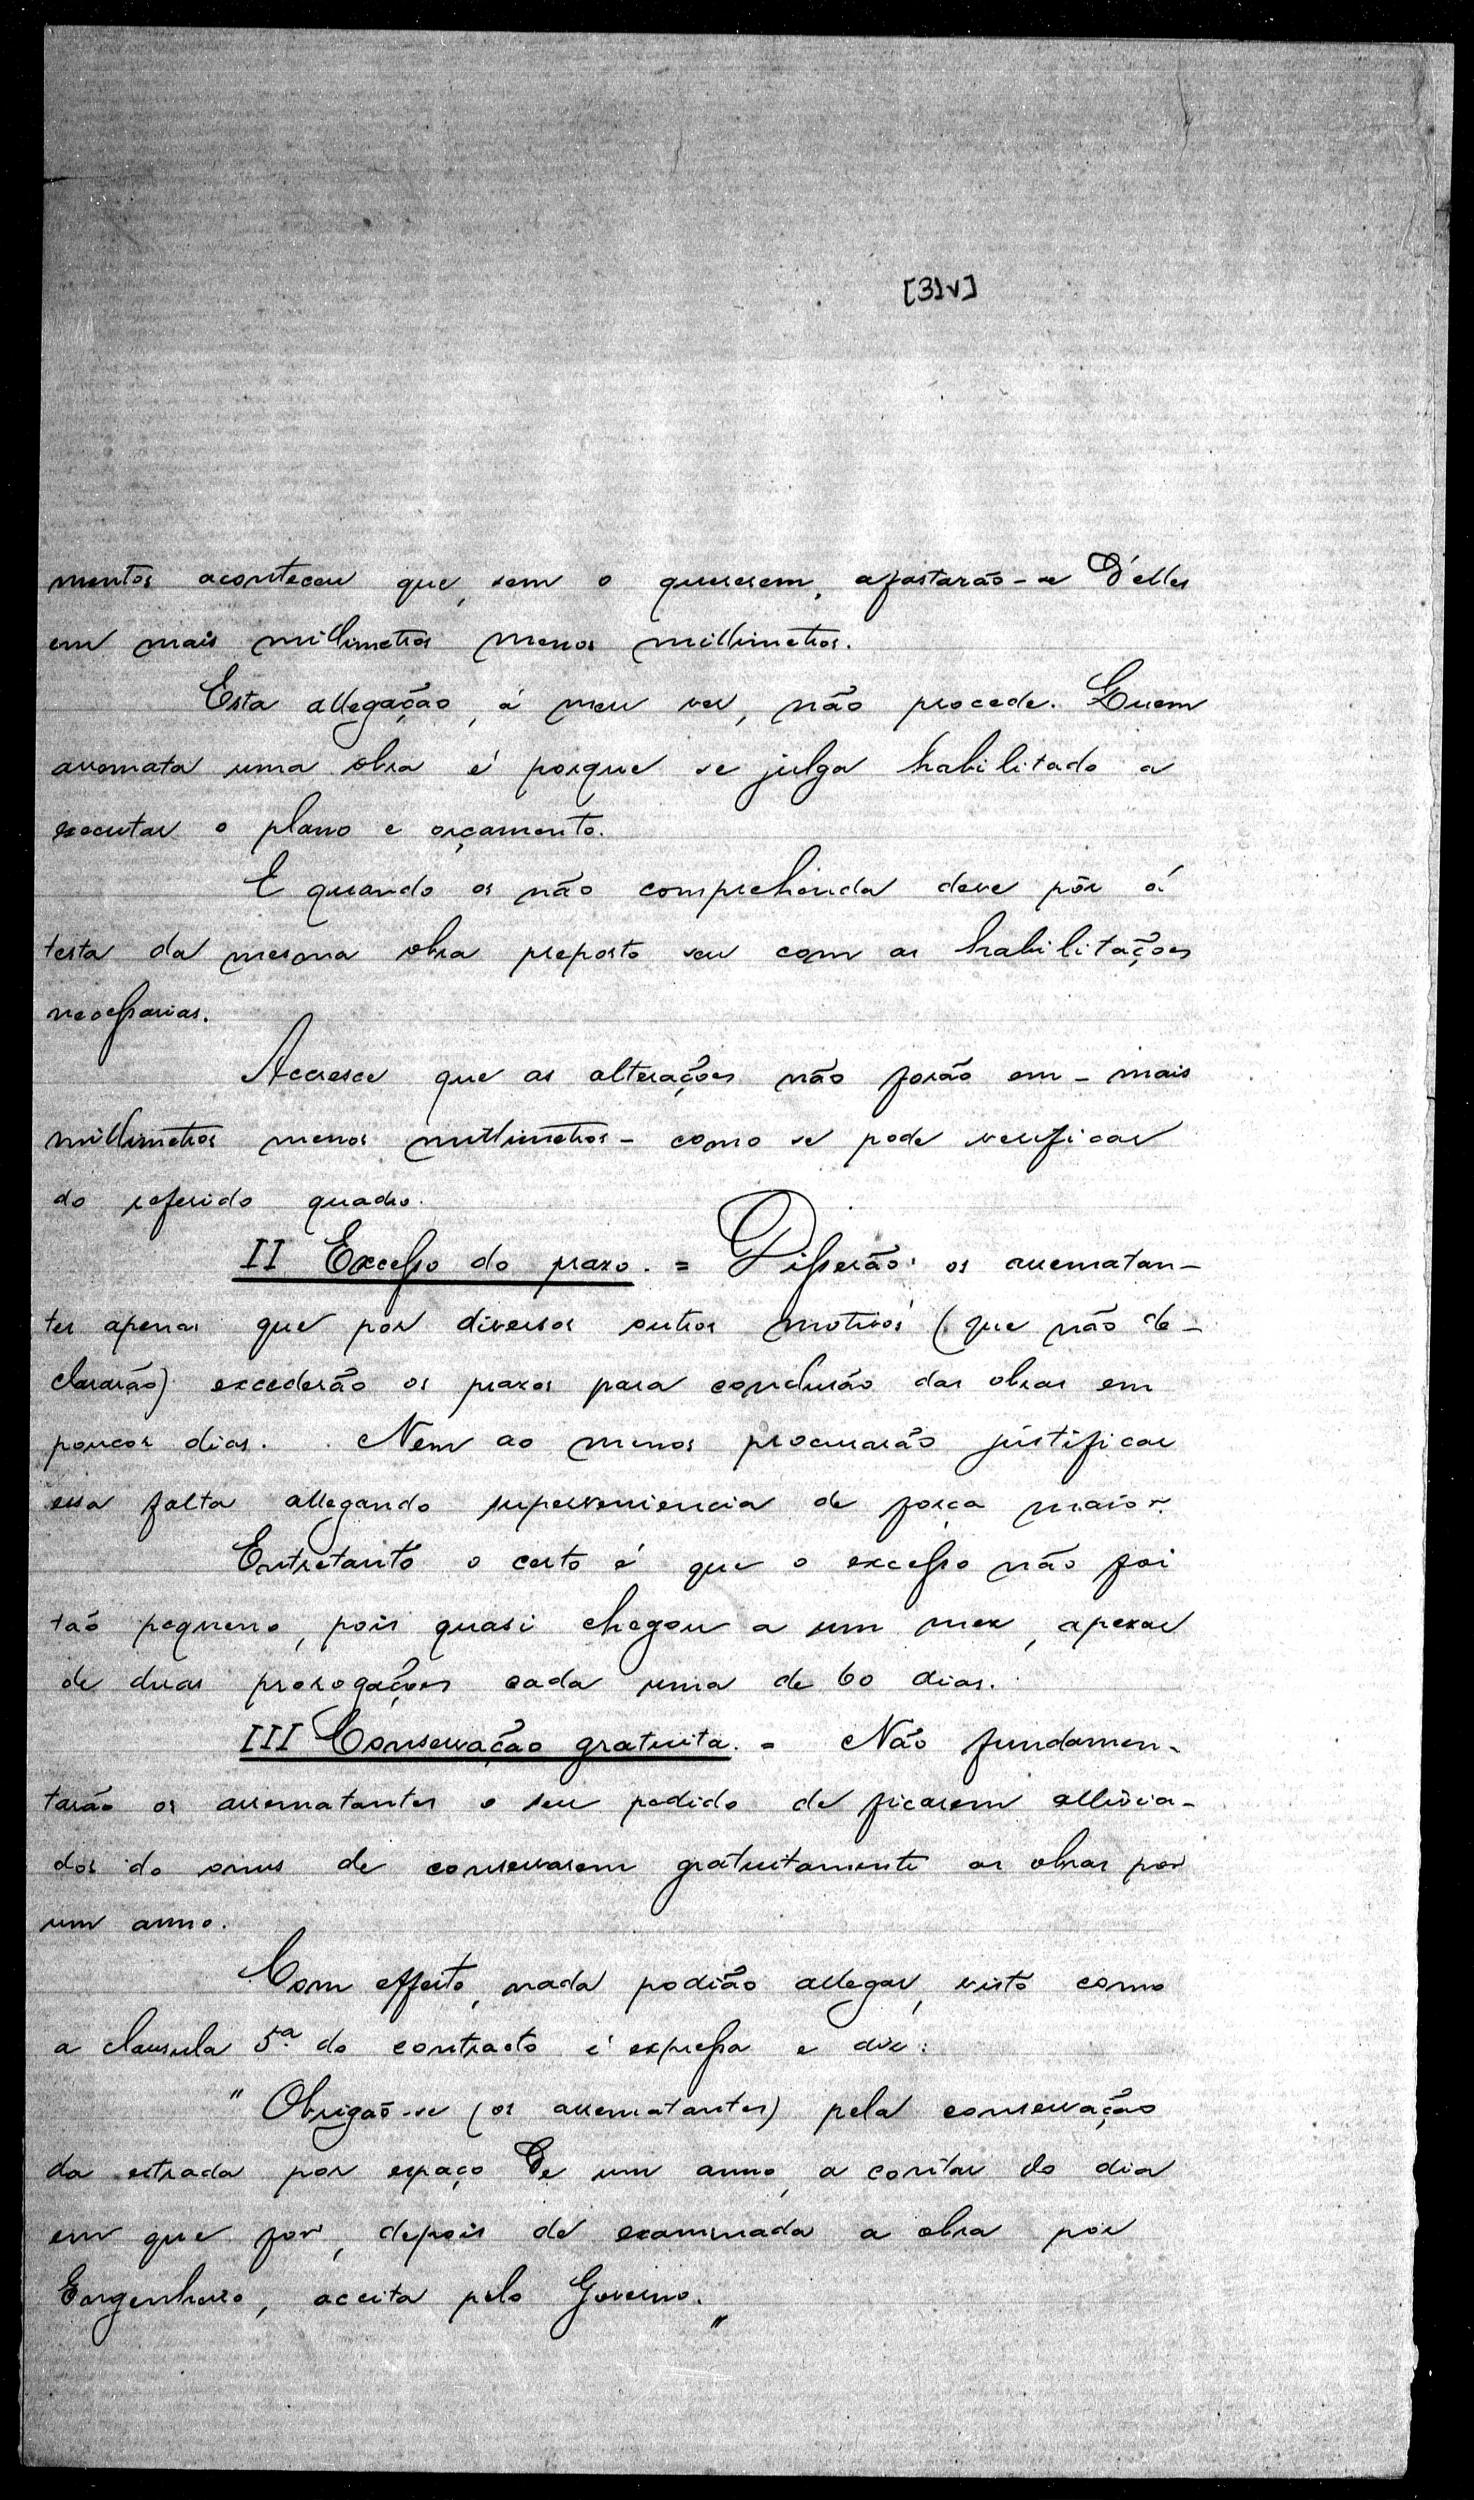 [31v]
mentos aconteceu que, sem o quererem, afastarão-se D'elles
em mais millimetros menos millimetros.
Esta allegação, á meu ver, não procede. Quem
arremata uma obra é porque se julga habilitado a
executar o plano e orçamento.
E quando os não comprehenda deve pôr á
testa da mesma obra preposto seu com as habilitações
necessarias.
Accresce que as alterações não forão em - mais
millimetros menos millimetros - como se pode verificar
do referido quadro.
II Excesso do prazo. = Disserão os arrematan-
tes apenas que por diversos outros motivos (que não de-
clararão) excederão os prazos para conclusão das obras em
poucos dias. Nem ao menos procurarão justificar
essa falta allegando superveniencia de força maior.
Entretanto o certo é que o excesso não foi
tão pequeno, pois quasi chegou a um mez, apezar
de duas prorogações cada uma de 60 dias.
III Conservação gratuita. = Não fundamen-
tarão os arrematantes o seu pedido de ficarem allivia-
dos do onus de conservarem gratuitamente as obras por
um anno.
Com effeito, nada podião allegar, visto como
a clausula 5ª do contracto é expressa e diz:
" Obrigão-se (os arrematantes) pela conservação
da estrada por espaço De um anno, a contar do dia
em que for, depois de examinada a obra por
Engenheiro, aceita pelo Governo. "